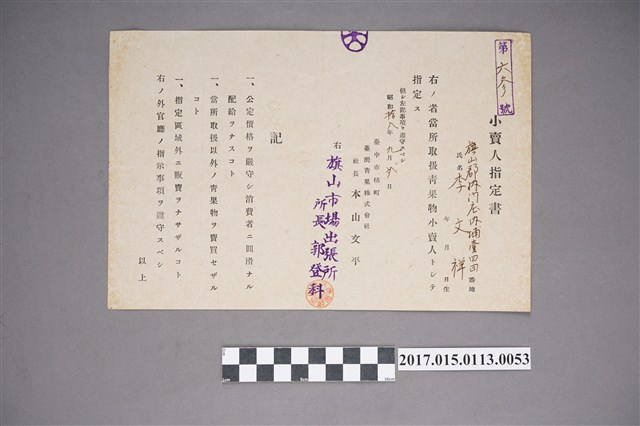 第六參號
小賣人指定書
旗山郡內門庄內埔壹四四番地
氏名 李文祥
年 月 日生
右ノ者當所取扱青果物小賣人トシテ
指定ス
但シ左記事項ヲ遵守スベシ
昭和拾八年九月 日
臺中市橘町
臺灣青果株式會社
社長 本山文平
右
旗山市場出張所
所長 郭登科
記
一、公定價格ヲ嚴守シ消費者ニ圓滑ナル
配給ヲナスコト
一、當所取扱以外ノ青果物ヲ賣買セザル
コト
一、指定區域外ニ販賣ヲナサザルコト
右ノ外官廳ノ指示事項ヲ遵守スベシ
以上
2017.015.0113.0053